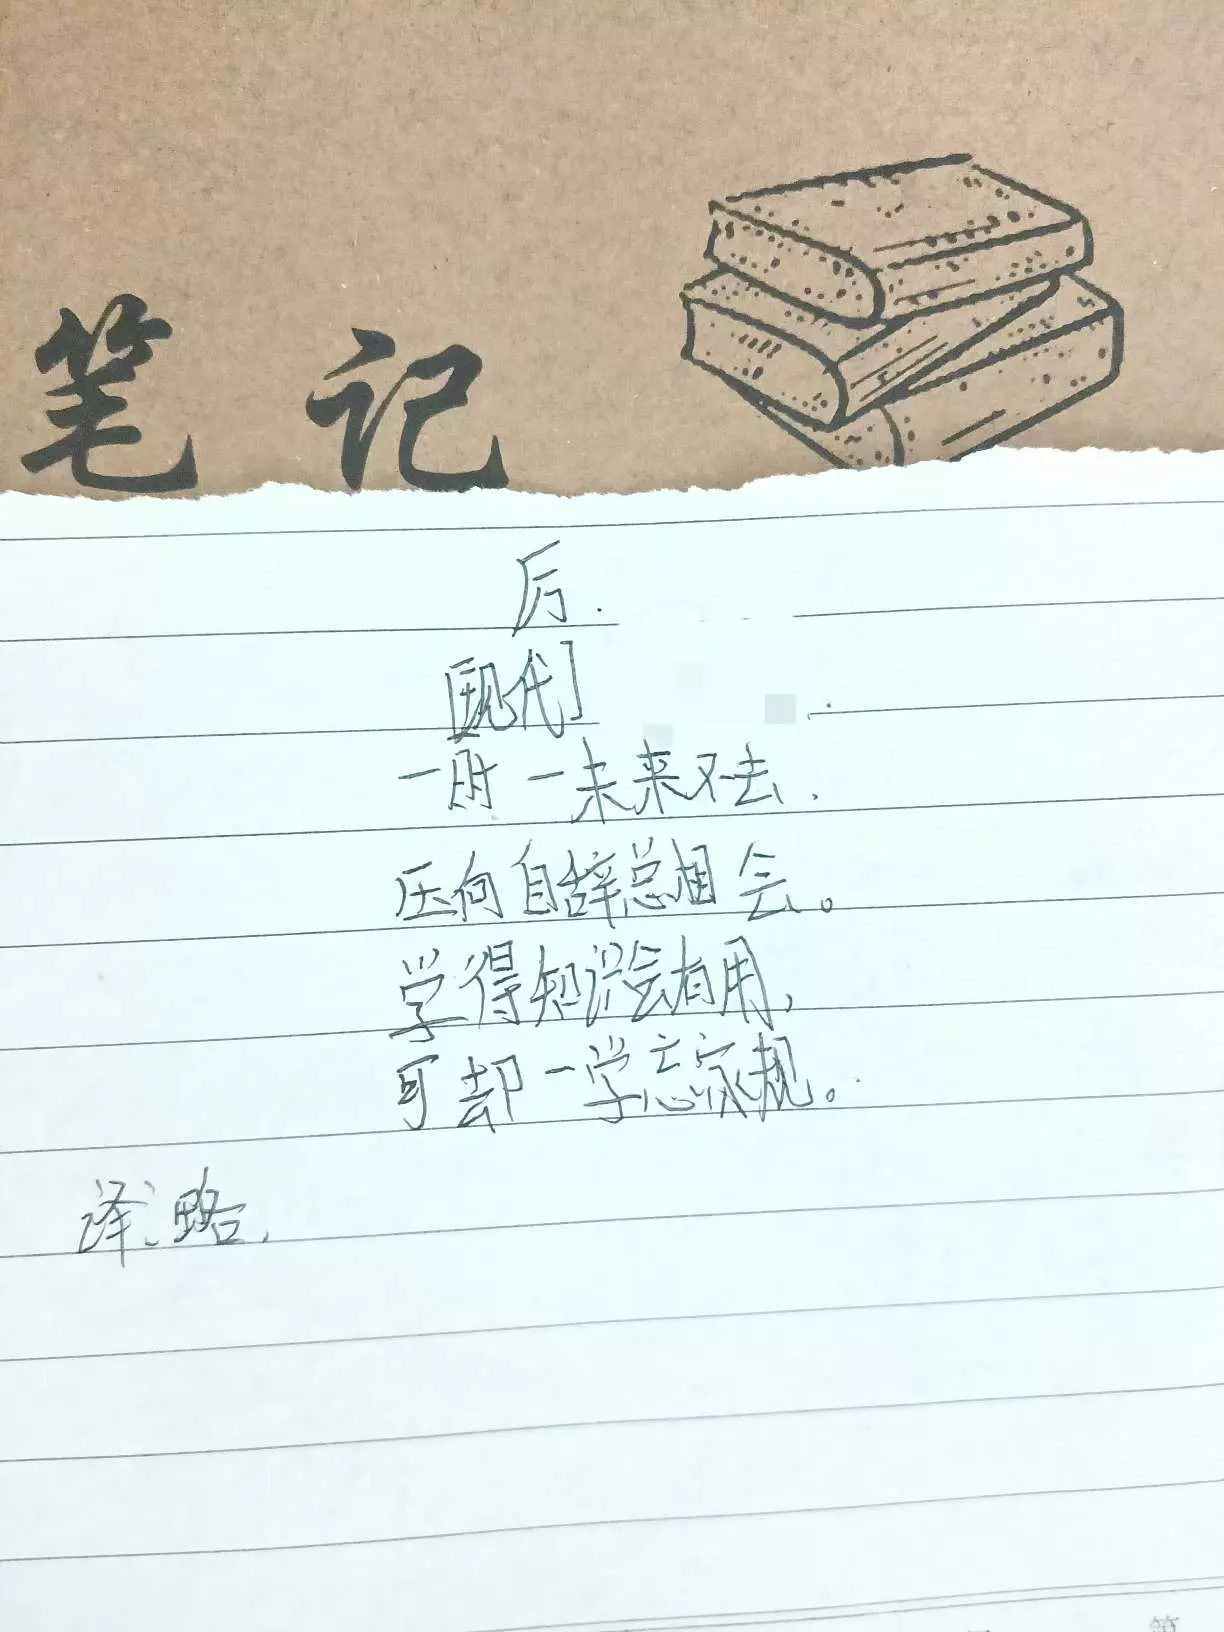 笔记
后.
[现代]
一时一未来不去.
压向自辞总相会。
学得知识会有用,
可却一学忘家规。
译:略.